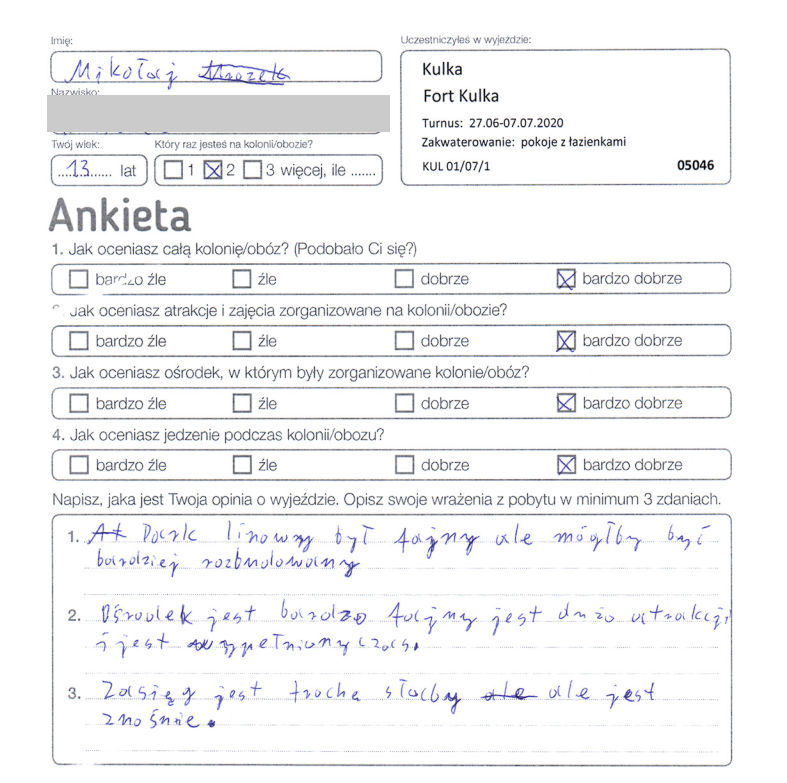 Imię:
Uczestniczyłeś w wyjeździe:
Mikołaj Mrozek
Kulka
Fort Kulka
Turnus: 27.06-07.07.2020
Zakwaterowanie: pokoje z łazienkami
KUL 01/07/1 05046
Nazwisko:
Twój wiek: Który raz jesteś na kolonii/obozie?
13 lat 1 2 3 więcej, ile .......
Ankieta
1. Jak oceniasz całą kolonię/obóz? (Podobało Ci się?)
bardzo źle źle dobrze bardzo dobrze
Jak oceniasz atrakcje i zajęcia zorganizowane na kolonii/obozie?
bardzo źle źle dobrze bardzo dobrze
3. Jak oceniasz ośrodek, w którym były zorganizowane kolonie/obóz?
bardzo źle źle dobrze bardzo dobrze
4. Jak oceniasz jedzenie podczas kolonii/obozu?
bardzo źle źle dobrze bardzo dobrze
Napisz, jaka jest Twoja opinia o wyjeździe. Opisz swoje wrażenia z pobytu w minimum 3 zdaniach.
1. Park linowy był fajny ale mógłby być
bardziej rozbudowany
2. Ośrodek jest bardzo fajny jest dużo atrakcji
i jest wypełniony czas.
3. Zasięg jest trochę słaby ale ale jest
znośnie.